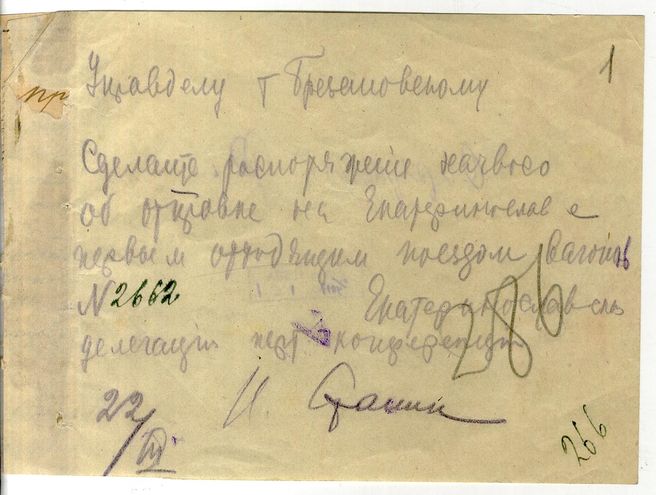 1
пр
Управделу т Брезановскому
Сделайте распоряжение начвосо
об отправке на Екатеринослав с
первым отходящим поездом вагонов
N 2662 Екатеринославск
делегации парт конференции
286
22/III И. Сталин
266